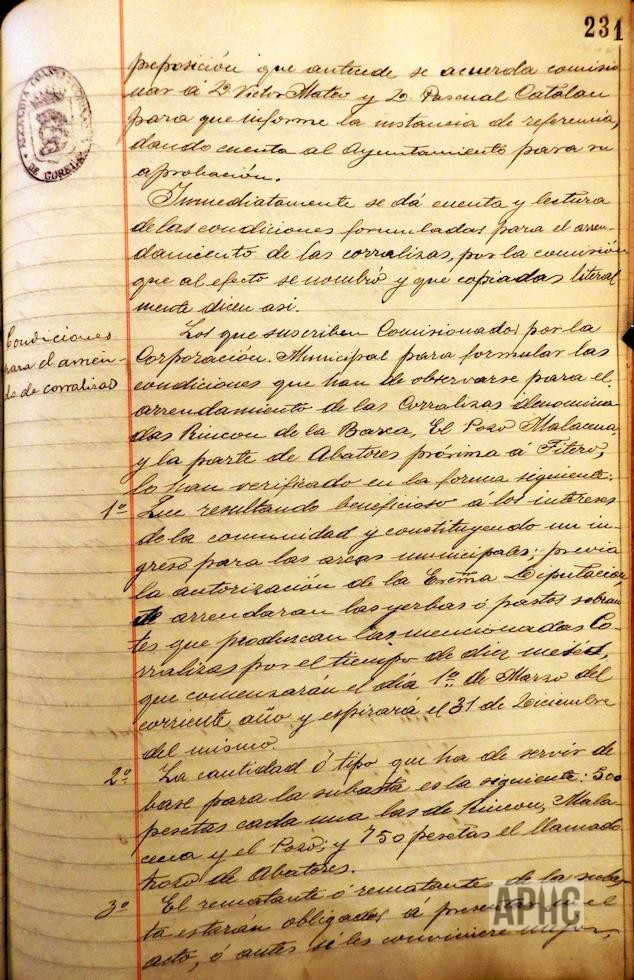 231
preposición que antecede se acuerda comisio
nar á D. Victor Mateo y D. Pascual Catalan
para que informe la instancia de referencia,
dando cuenta al Ayuntamiento para su
aprobación.
Inmediatamente se dá cuenta y lectura
de las condiciones formuladas para el arren-
damiento de las corralizas, por la comisión
que al efecto se nombró y que copiadas literal
mente dicen asi.
Condiciones
para el arrien-
do de corralizas
Los que suscriben Comisionados por la
Corporación Municipal para formular las
condiciones que han de observarse para el
arrendamiento de las Corralizas denomina
das Rincon de la Barca, El Pozo Malacena
y la parte de Abatores próxima á Fitero,
lo han verificado en la forma siguiente:
1º Que resultando beneficioso á los intereses
de la comunidad y constituyendo un in
greso para las arcas municipales; previa
la autorización de la Excma Diputación
se arrendaran las yerbas ó pastos sobran
tes que produzcan las mencionadas Co-
rralizas por el tiempo de diez meses,
que comenzarán el día 1º de Marzo del
corriente año y espirará el 31 de Diciembre
del mismo.
2º La cantidad ó tipo que ha de servir de
base para la subasta es la siguiente: 500
pesetas cada una las de Rincon, Mala
cena y el Pozo; y 750 pesetas el llamado
trozo de Abatores.
3º El rematante ó rematantes de la subas
ta estarán obligados á presentar en el
acto, ó antes si les conviniere mejor,
APHC